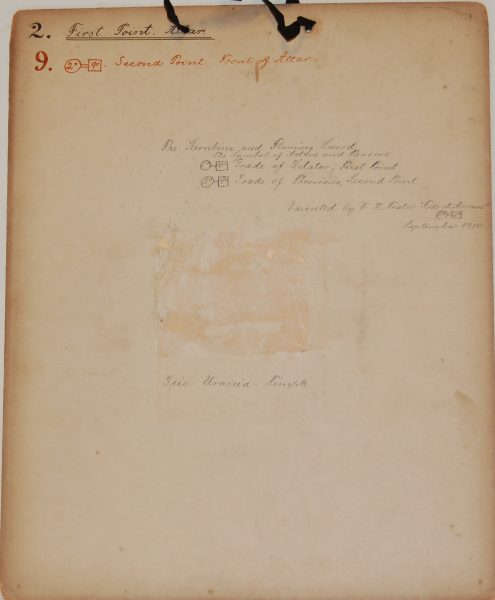 2. First Point. Altar.
9. 2°=9° Second Point. Front of Altar.
The Kerubim and Flaming Sword
The Symbol of Active and Passive
Grade of Zelator, First Point
Grade of Theoricus, Second Point
Executed by
September 1910
Isis-Urania-Temple